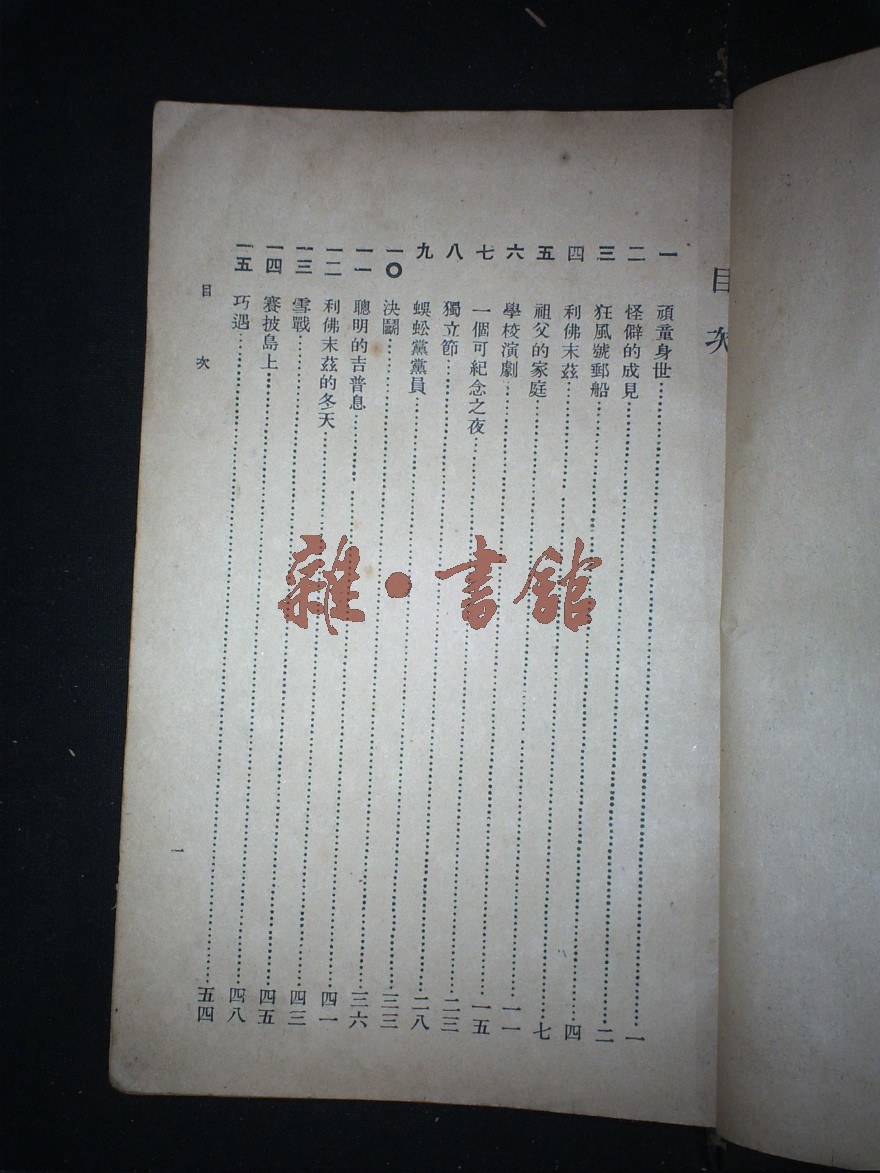 目次
一 頑童身世……一
二 怪僻的成見……二
三 狂風號郵船……四
四 利佛末茲……七
五 祖父的家庭……一一
六 學校演劇……一五
七 一個可紀念之夜……二三
八 獨立節……二八
九 蜈蚣黨黨員……三三
一〇 決鬭……三六
一一 聰明的吉普息……四一
一二 利佛末茲的冬天……四三
一三 雪戰……四五
一四 賽披島上……四八
一五 巧遇……五四
目次
一
雜·書館